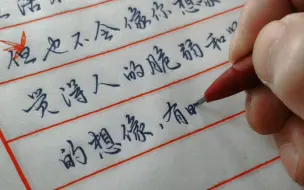 活
但也不会像你想
觉得人的脆弱和
的想像,有